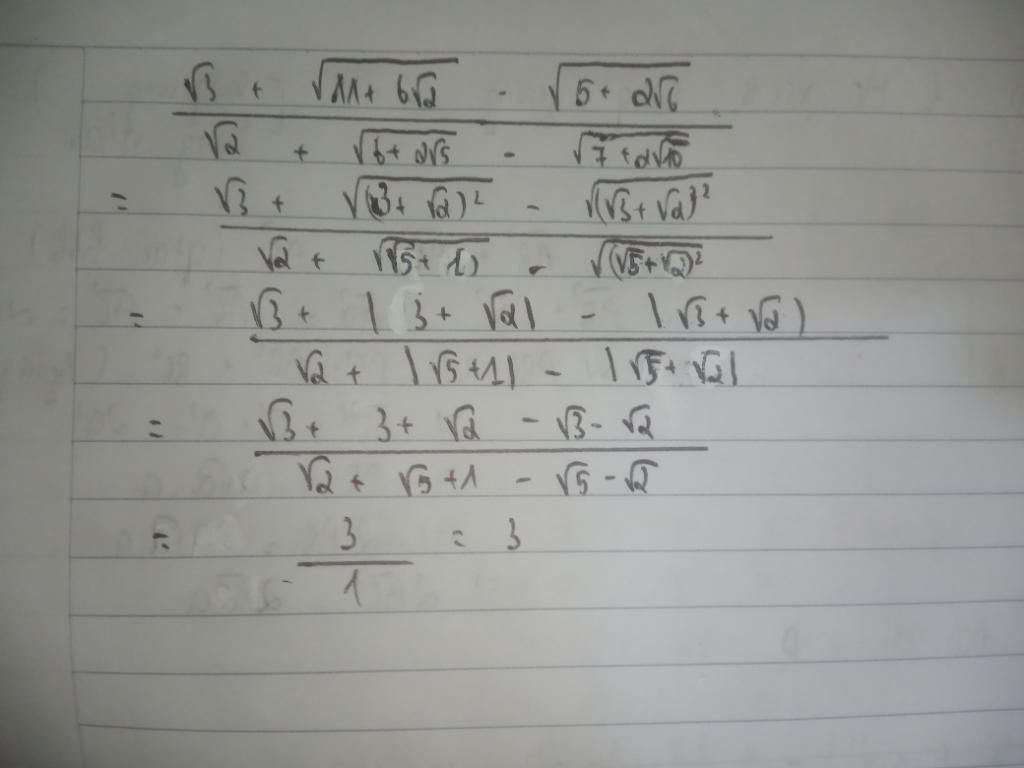 √3 + √(11 + 6√2) - √(5 + 2√6)
√2 + √(6 + 2√5) - √(7 + 2√10)
= √3 + √((3 + √2)²) - √((√3 + √2)²)
√2 + √(√5 + 1) - √((√5 + √2)²)
= √3 + |3 + √2| - |√3 + √2)
√2 + |√5 + 1| - |√5 + √2|
= √3 + 3 + √2 - √3 - √2
√2 + √5 + 1 - √5 - √2
= 3 = 3
1